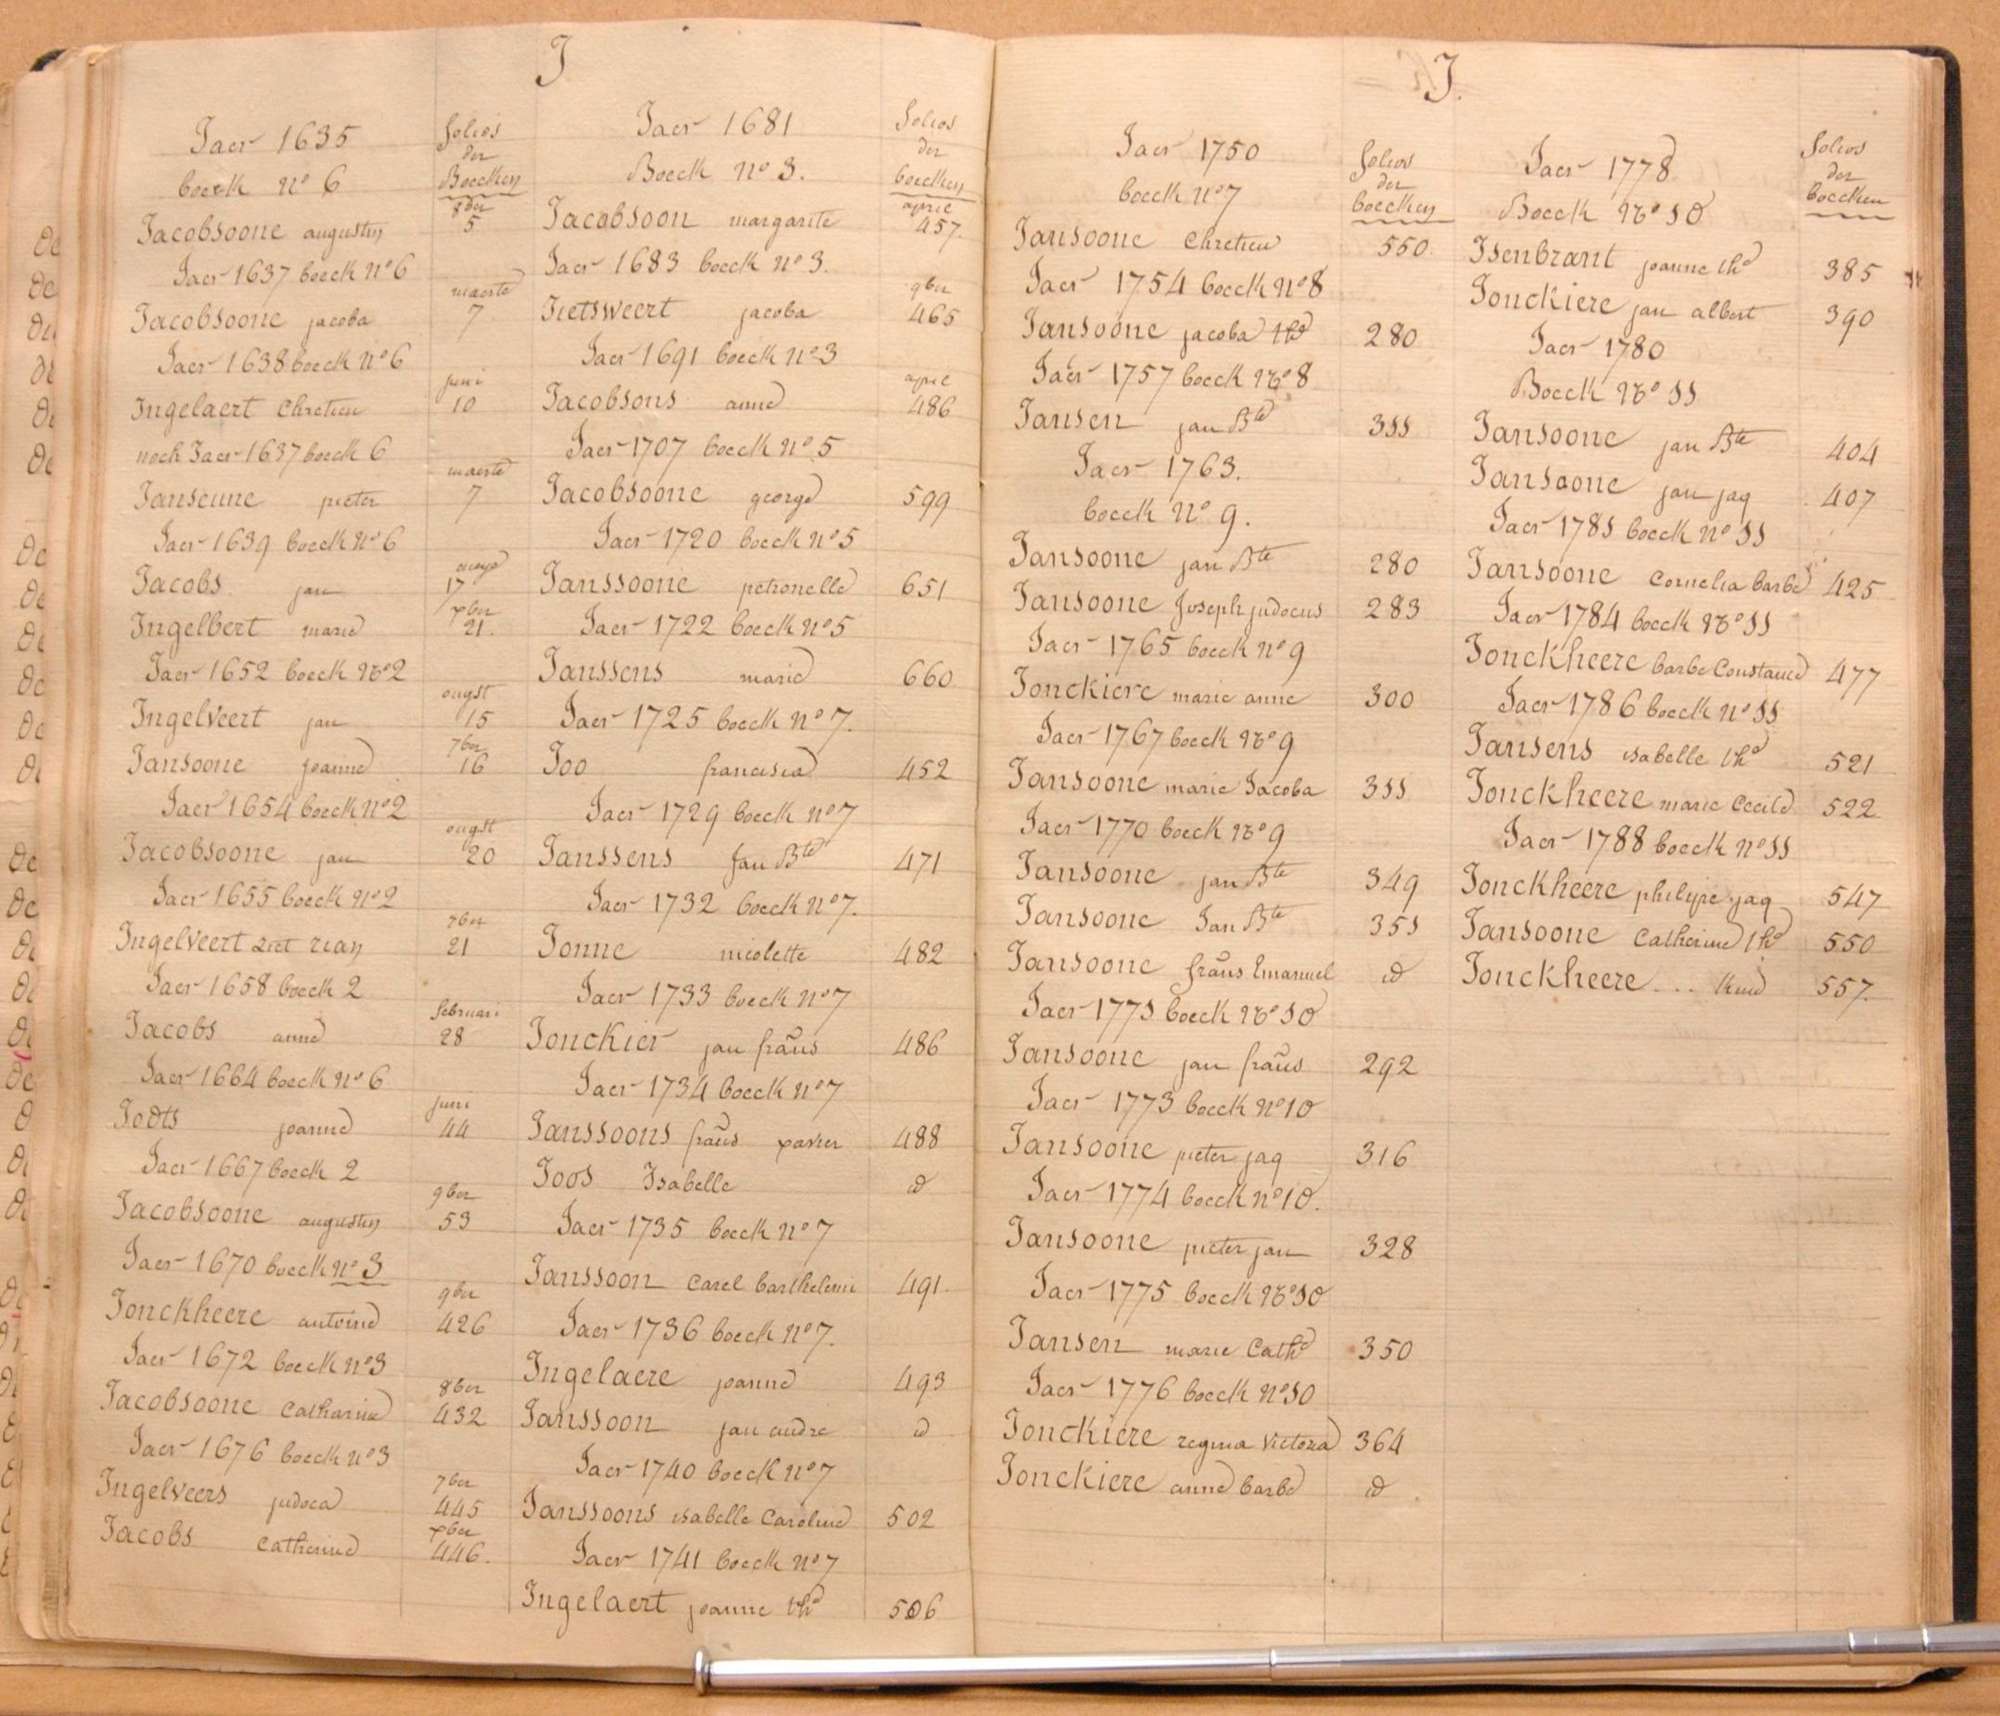 J
Jaer 1635
boeck No 6
folios
der
Boecken
Jacobsoone augustyn 8ber 5
Jaer 1637 boeck No 6
Jacobsoone jacoba maerte 7
Jaer 1638 boeck No 6
Ingelaert Chretien juni 10
noch Jaer 1637 boeck 6
Janseune pieter maerte 7
Jaer 1639 boeck No 6
Jacobs jan 17
Ingelbert marie xber 21.
Jaer 1652 boeck No 2
Ingelveert jan ougst 15
Jansoone joanne 7ber 16
Jaer 1654 boeck No 2
Jacobsoone jan ougst 20
Jaer 1655 boeck No 2
Ingelveert 7ber 21
Jaer 1658 boeck 2
Jacobs anne februari 28
Jaer 1664 boeck No 6
Jodts joanne juni 44
Jaer 1667 boeck 2
Jacobsoone augustyn 9ber 53
Jaer 1670 boeck No 3
Jonckheere antoine 9ber 426
Jaer 1672 boeck No 3
Jacobsoone Catharina 8ber 432
Jaer 1676 boeck No 3
Ingelveers judoca 7ber 445
Jacobs Catherine xber 446.
Jaer 1681
Boeck No 3.
folios
der
boecken
Jacobsoon margarite april 457.
Jaer 1683 boeck No 3.
Jietsweert jacoba 9ber 465
Jaer 1691 boeck No 3
Jacobsons anne april 486
Jaer 1707 boeck No 5
Jacobsoone george 599
Jaer 1720 boeck No 5
Janssoone petronelle 651
Jaer 1722 boeck No 5
Janssens marie 660
Jaer 1725 boeck No 7.
Joo francisca 452
Jaer 1729 boeck No 7
Janssens Jan Bte 471
Jaer 1732 boeck No 7.
Jonne nicolette 482
Jaer 1733 boeck No 7
Jonckier jan frans 486
Jaer 1734 boeck No 7
Janssoons frans xavier 488
Joos Isabelle id
Jaer 1735 boeck No 7
Janssoon Carel barthelemi 491.
Jaer 1736 boeck No 7.
Ingelaere joanne 493
Janssoon jan andre id
Jaer 1740 boeck No 7
Janssoons isabelle Caroline 502
Jaer 1741 boeck No 7
Ingelaert joanne the 506
J.
Jaer 1750
boeck No 7
folios
der
boecken
Jansoone Chretien 550.
Jaer 1754 boeck No 8
Jansoone jacoba the 280
Jaer 1757 boeck No 8
Jansen jan Bte 311
Jaer 1763.
boeck No 9.
Jansoone jan Bte 280
Jansoone Joseph judocus 283
Jaer 1765 boeck No 9
Jonckiere marie anne 300
Jaer 1767 boeck No 9
Jansoone marie Jacoba 311
Jaer 1770 boeck No 9
Jansoone jan Bte 349
Jansoone Jan Bte 351
Jansoone frans Emanuel id
Jaer 1771 boeck No 10
Jansoone jan frans 292
Jaer 1773 boeck No 10
Jansoone pieter jaq 316
Jaer 1774 boeck No 10.
Jansoone pieter jan 328
Jaer 1775 boeck No 10
Jansen marie Cathe 350
Jaer 1776 boeck No 10
Jonckiere regina Victoria 364
Jonckiere anne barbe id
Jaer 1778
Boeck No 10
folios
der
boecken
Isenbrant joanne the 385
Jonckiere jan albert 390
Jaer 1780
Boeck No 11
Jansoone jan Bte 404
Jansoone jan jaq 407
Jaer 1781 boeck No 11
Jansoone Cornelia barbe 425
Jaer 1784 boeck No 11
Jonckheere barbe Constance 477
Jaer 1786 boeck No 11
Jansens isabelle the 521
Jonckheere marie Cecile 522
Jaer 1788 boeck No 11
Jonckheere philippe jaq 547
Jansoone Catherine the 550
Jonckheere ... kind 557.